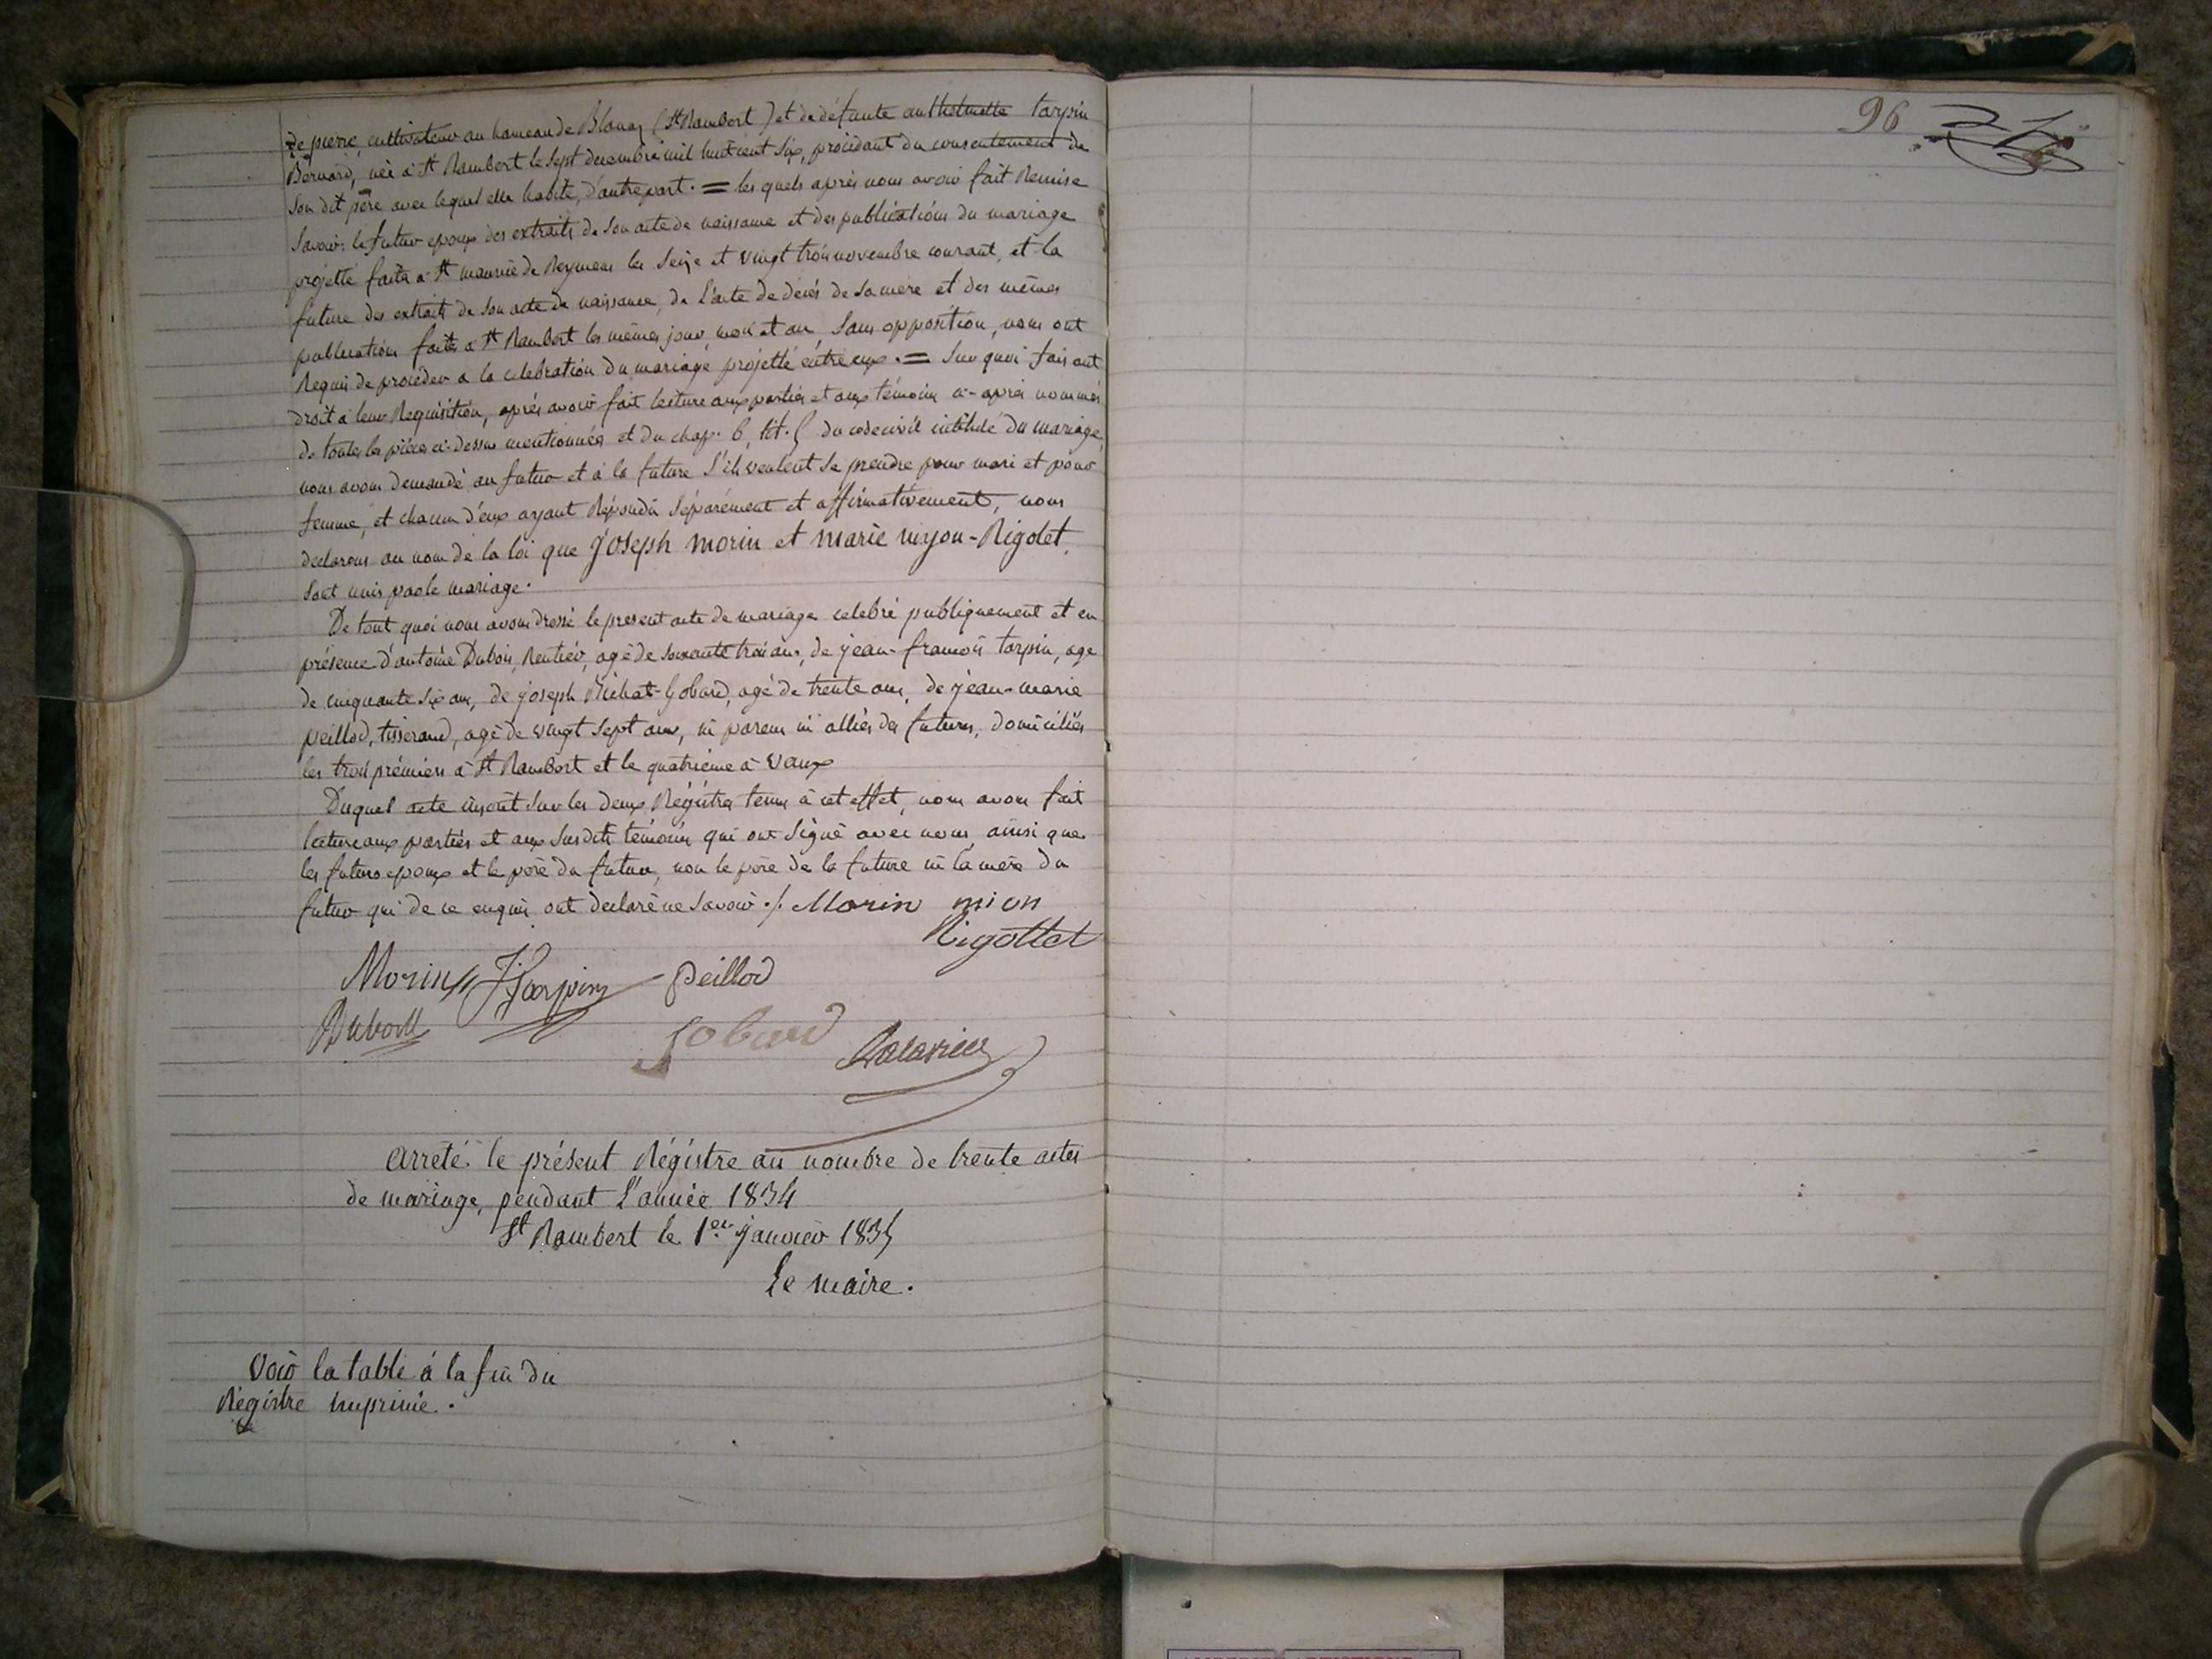 de pierre, cultivateur au hameau de Blanaz (St Rambert) et de défunte anthelmette tarpin
Bernard, née à St Rambert le sept decembre mil huit cent six, procédant du consentement de
son dit père avec lequel elle habite, d'autre part. = les quels après nous avoir fait Remise
savoir: le futur epoux des extraits de son acte de naissance et des publications du mariage
projetté faites à St maurice de Reymens les seize et vingt trois novembre courant, et la
future des extraits de son acte de naissance, de l'acte de décès de sa mere et des mêmes
publications faites à St Rambert les mêmes jour, mois et an, sans opposition, nous ont
Requis de procéder a la celebration du mariage projetté entre eux. = Sur quoi fais ant
droit à leur Requisition, après avoir fait lecture aux parties et aux témoins ci-après nommés
de toutes les pièces ci-dessus mentionnées et du chap. 6, tit. 5 du code civil intitulé du mariage,
nous avons demandé au futur et à la future s'ils veulent se prendre pour mari et pour
femme, et chacun d'eux ayant Répondu séparément et affirmativement, nous
declarons au nom de la loi que Joseph morin et marie miyon-Rigolet,
sont unis par le mariage.
De tout quoi nous avons dressé le present acte de mariage celebré publiquement et en
présence d'antoine Dubois, Rentier, agé de soixante trois ans, de jean-francois tarpin, agé
de cinquante six ans, de joseph Michat-Gobard, agé de trente ans, de jean-marie
peillod, tisserand, agé de vingt sept ans, ni parens ni alliés des futurs, domiciliés
les trois prémiers à St Rambert et le quatrième à vaux
Duquel acte inscrit sur les deux Régistres tenus à cet effet, nous avons fait
lecture aux parties et aux susdits témoins qui ont signé avec nous, ainsi que
les futurs epoux et le père du futur, non le père de la future ni la mère du
futur qui de ce enquis ont declaré ne savoir ./. Morin mion
Rigottet
Morin J f tarpin peillod
Dubois
Gobard
arreté le présent Régistre au nombre de trente actes
de mariage, pendant l'année 1834
St Rambert le 1er janvier 1835
Le maire.
Voir la table à la fin du
Régistre imprimé.
96